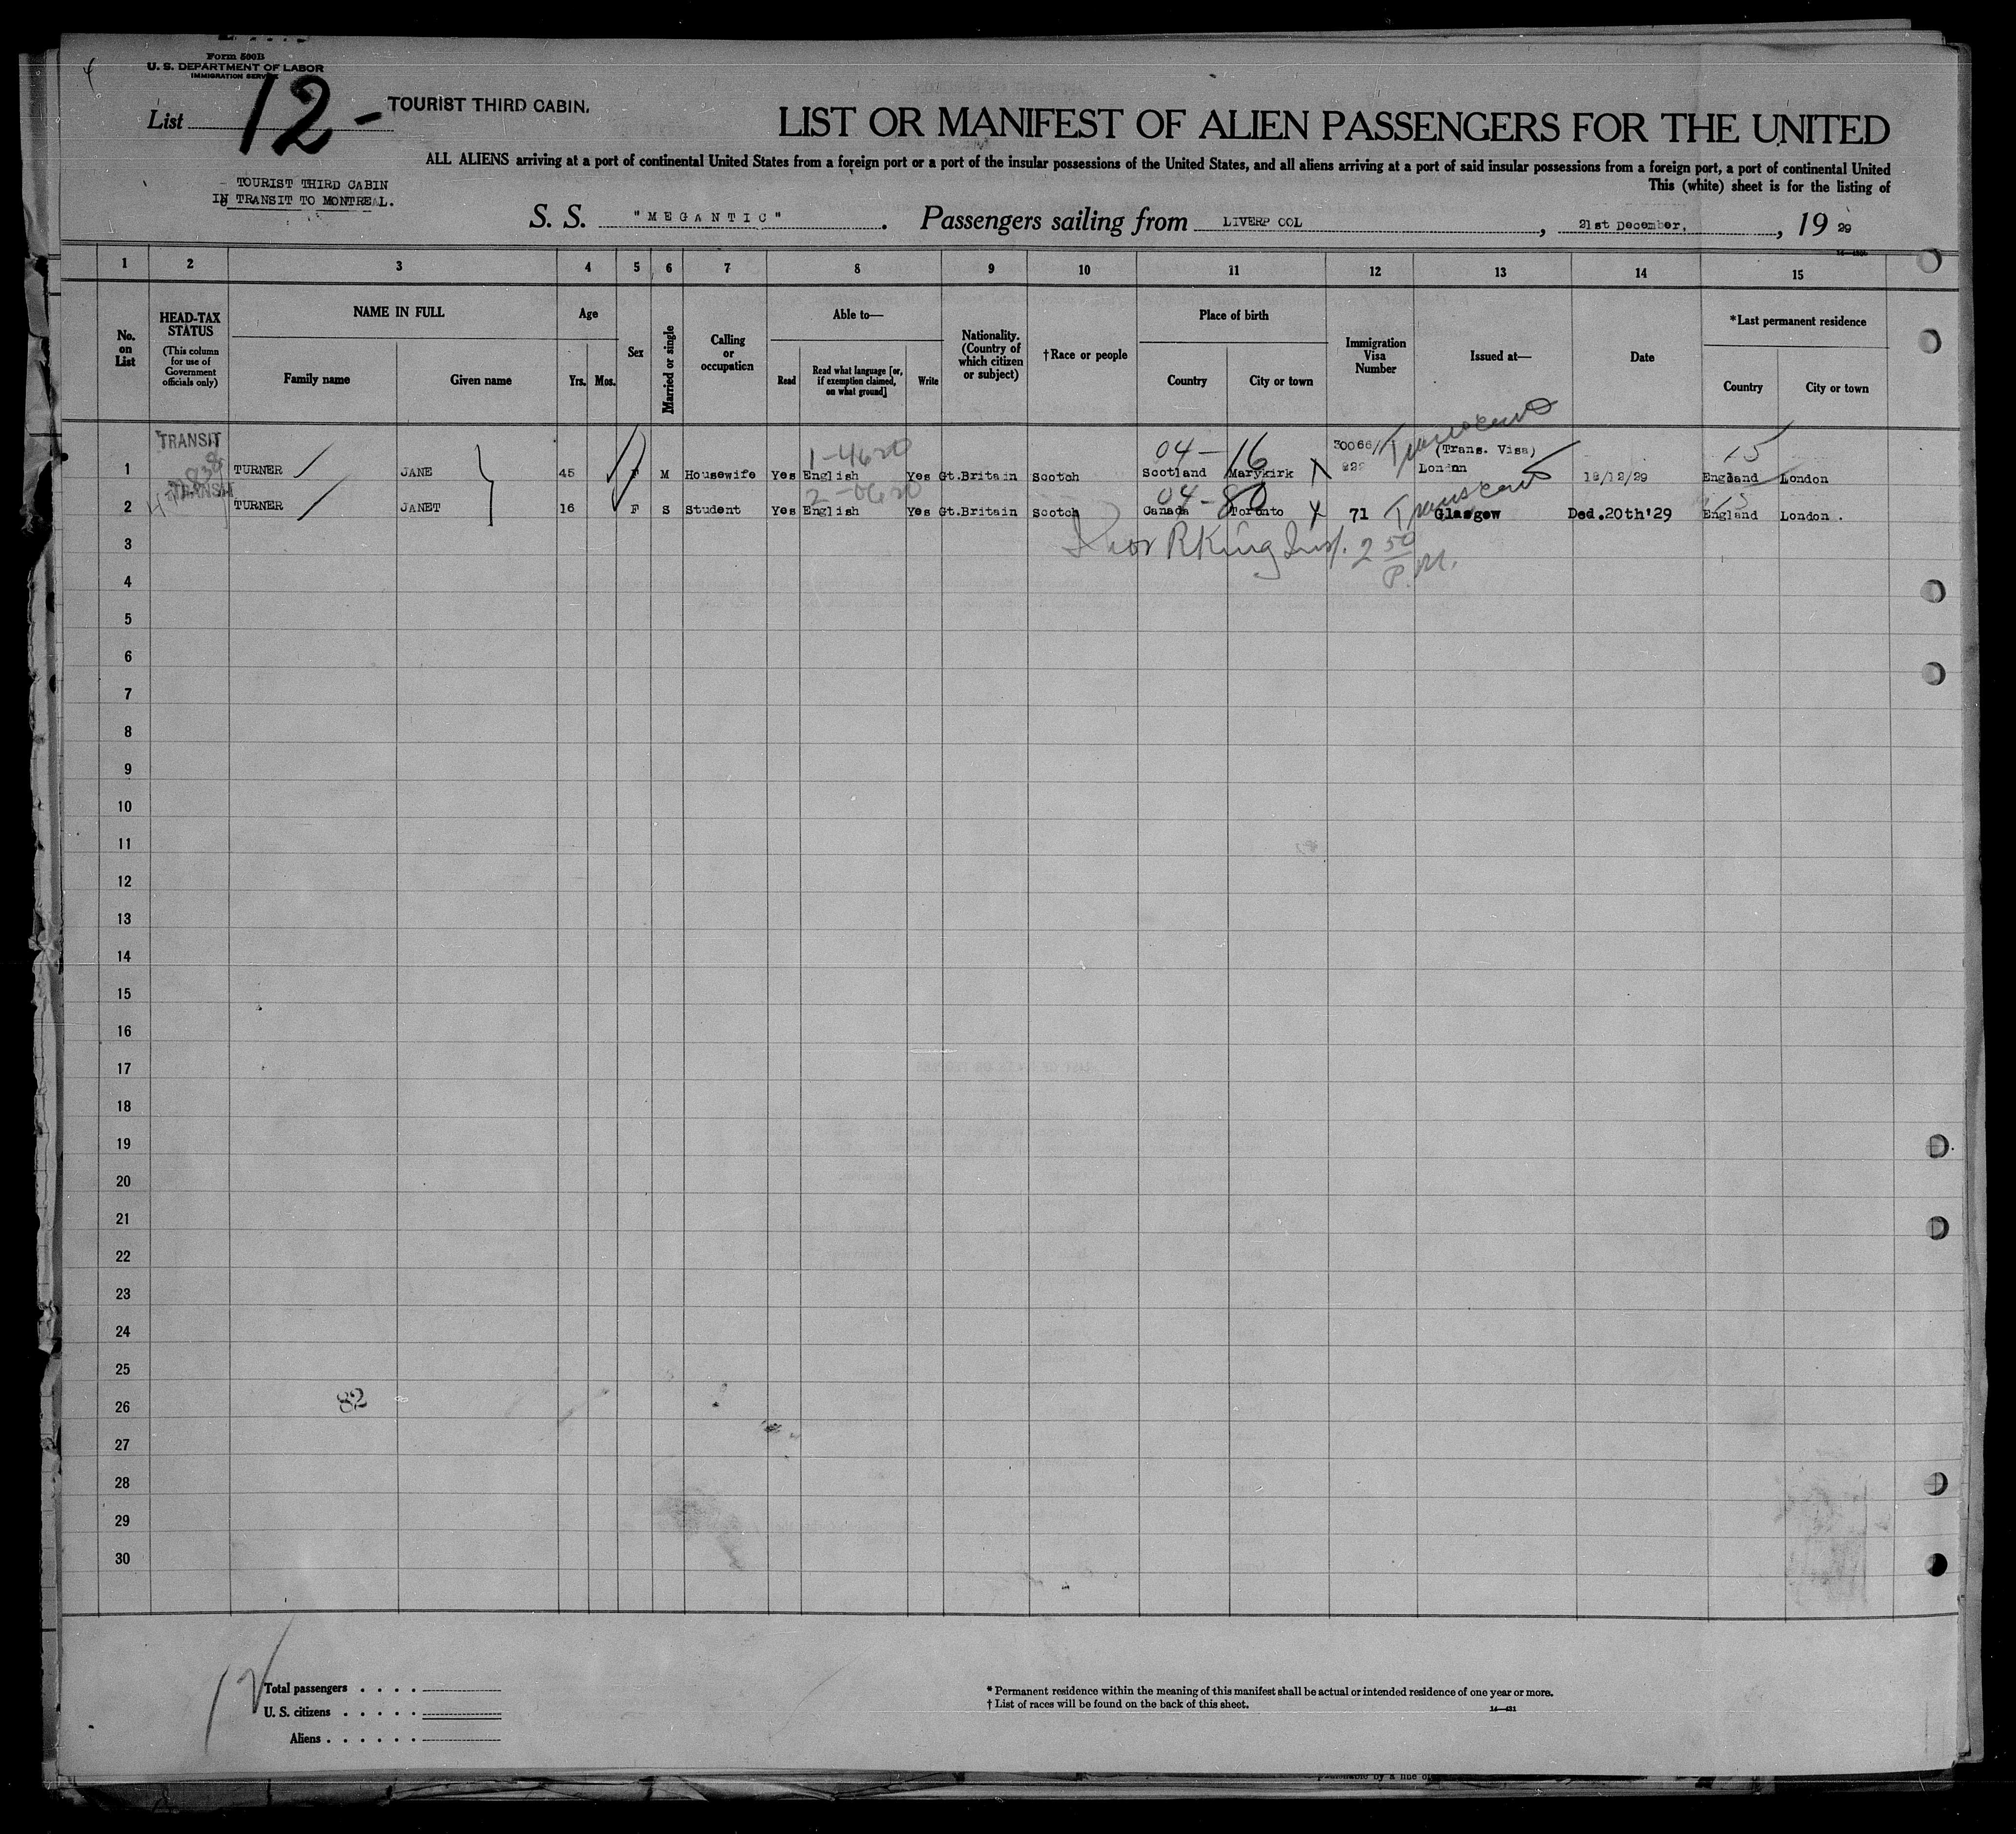 Form 500B
U. S. DEPARTMENT OF LABOR
IMMIGRATION SERVICE
List 12 - TOURIST THIRD CABIN.
LIST OR MANIFEST OF ALIEN PASSENGERS FOR THE UNITED
ALL ALIENS arriving at a port of continental United States from a foreign port or a port of the insular possessions of the United States, and all aliens arriving at a port of said insular possessions from a foreign port, a port of continental United
This (white) sheet is for the listing of
TOURIST THIRD CABIN
IN TRANSIT TO MONTREAL.
S. S. "MEGANTIC" . Passengers sailing from LIVERPOOL , 21st December, , 19 29
1 2 3 4 5 6 7 8 9 10 11 12 13 14 15
No. on List
HEAD-TAX STATUS
(This column for use of Government officials only)
NAME IN FULL
Family name Given name
Age
Yrs. Mos.
Sex
Married or single
Calling or occupation
Able to—
Read Read what language [or, if exemption claimed, on what ground] Write
Nationality. (Country of which citizen or subject)
†Race or people
Place of birth
Country City or town
Immigration Visa Number
Issued at—
Date
*Last permanent residence
Country City or town
TRANSIT 1-4620 04-16 30066/ (Trans. Visa) 15
1 TURNER JANE 45 F M Housewife Yes English Yes Gt.Britain Scotch Scotland Marykirk London 18/12/29 England London
TRANSIT 04-80
2 TURNER JANET 16 F S Student Yes English Yes Gt.Britain Scotch Canada Toronto 71 Glasgow Ded.20th'29 England London.
3 R King Insp. 2 50 P.M.
4
5
6
7
8
9
10
11
12
13
14
15
16
17
18
19
20
21
22
23
24
25
26 82
27
28
29
30
12
Total passengers . . . .
U. S. citizens . . . . .
Aliens . . . . . .
* Permanent residence within the meaning of this manifest shall be actual or intended residence of one year or more.
† List of races will be found on the back of this sheet.
14—431